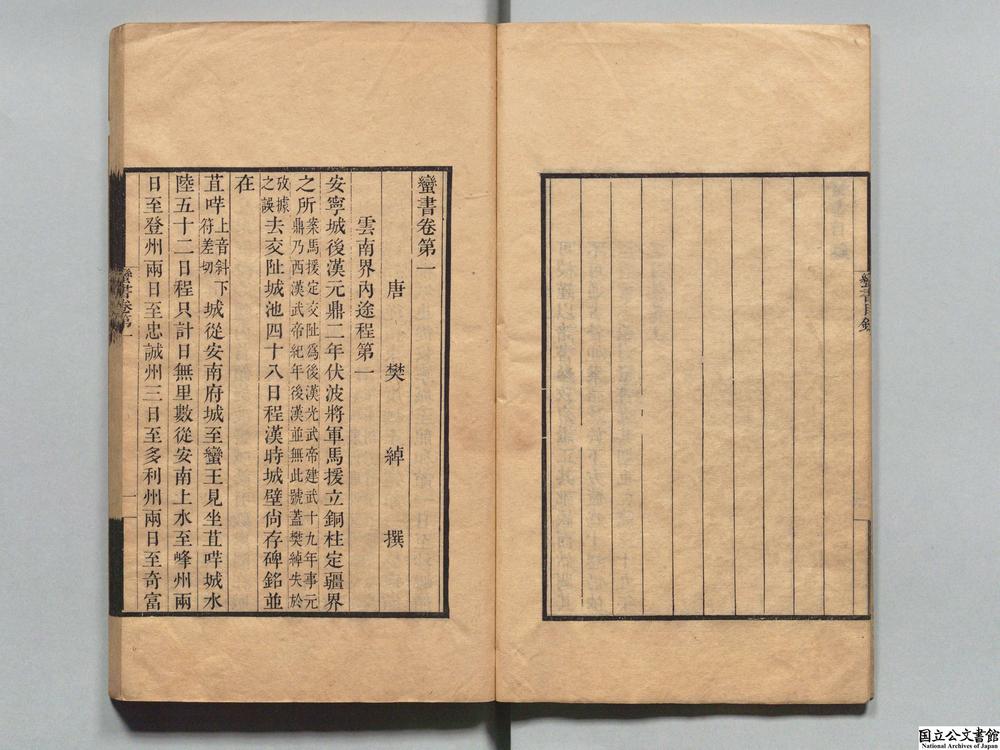 蠻書目錄
蠻書卷第一
唐 樊 綽 撰
雲南界內途程第一
安寧城後漢元鼎二年伏波將軍馬援立銅柱定疆界
之所案馬援定交阯為後漢光武帝建武十九年事元
鼎乃西漢武帝紀年後漢並無此號蓋樊綽失於
攷據
之誤去交阯城池四十八日程漢時城壁尙存碑銘並
在
苴哶上音斜下
符差切城從安南府城至蠻王見坐苴哶城水
陸五十二日程只計日無里數從安南上水至峰州兩
日至登州兩日至忠誠州三日至多利州兩日至奇富
蠻書卷第一
一
国立公文書館
National Archives of Japan